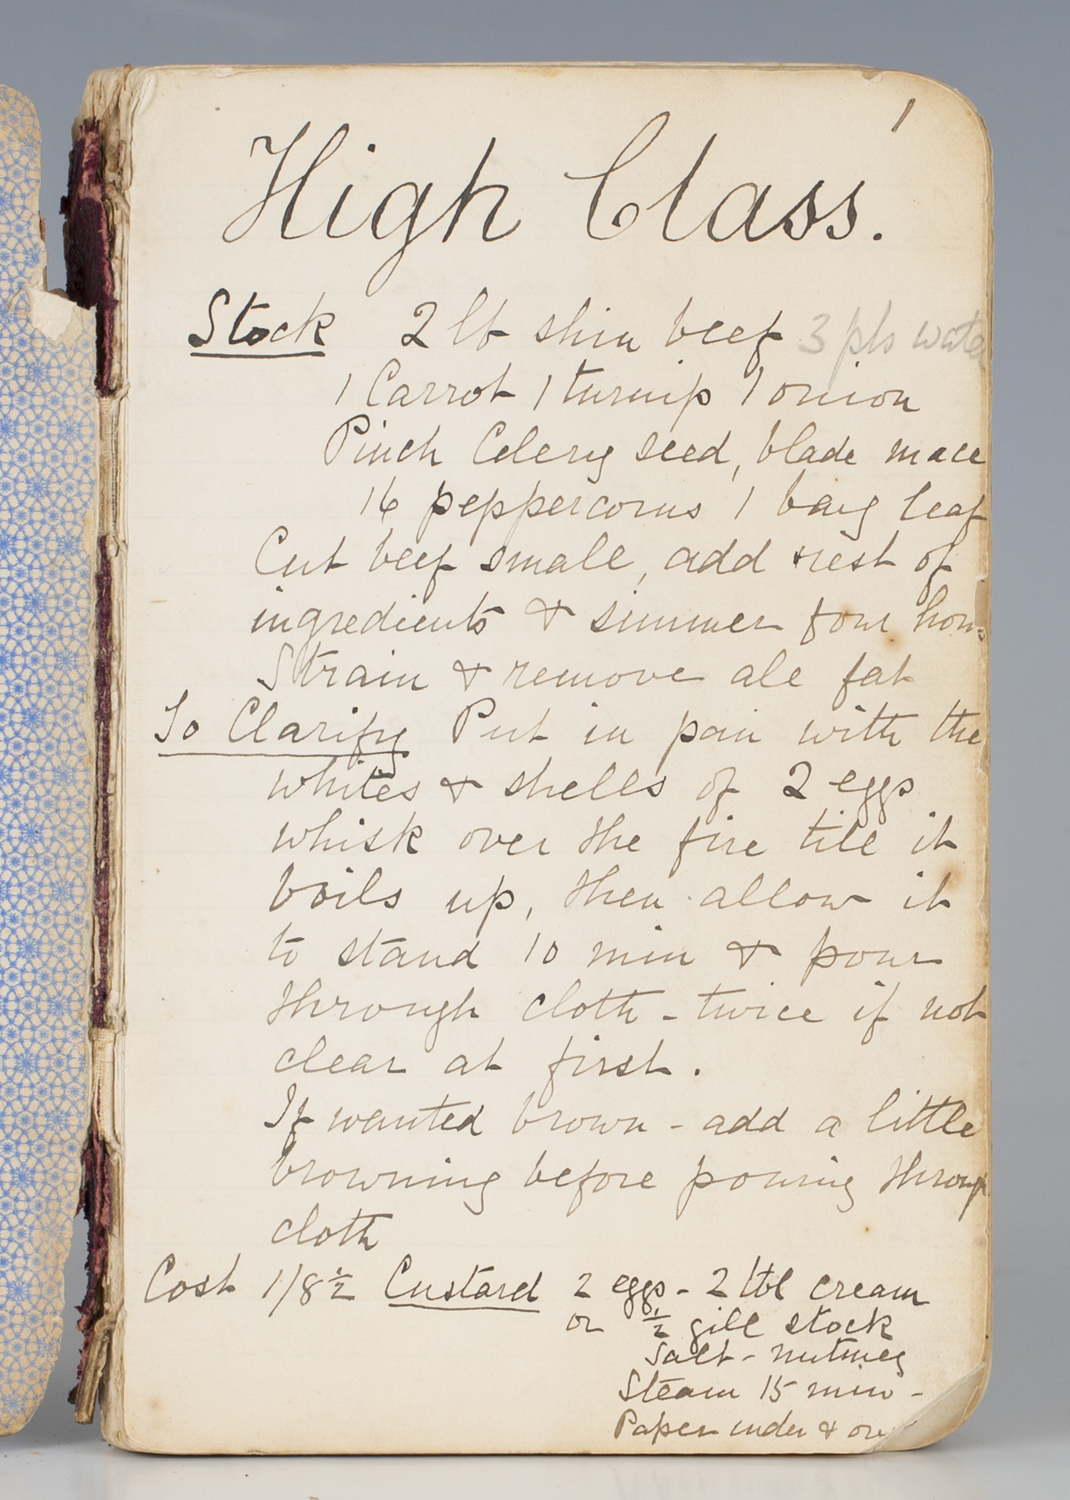 1
High Class.
Stock 2 lb shin beef 3 pts wate
1 Carrot 1 turnip 1 onion
Pinch Celery seed, blade mace
16 peppercorns 1 bay leaf
Cut beef small, add rest of
ingredients & simmer four hou
Strain & remove all fat
To Clarify Put in pan with the
whites & shells of 2 eggs
whisk over the fire till it
boils up, then allow it
to stand 10 min & pour
through cloth - twice if not
clear at first.
If wanted brown - add a little
browning before pouring through
cloth
Cost 1/8½ Custard 2 eggs - 2 tbl cream
or ½ gill stock
Salt - nutmeg
Steam 15 min -
Paper under & ov